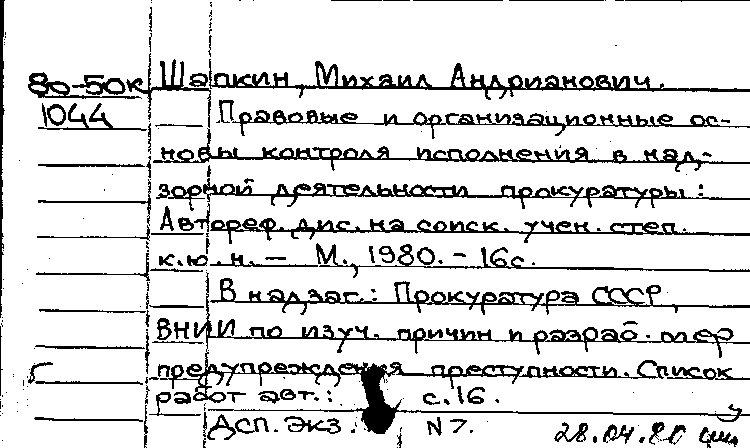 80-50к Шапкин, Михаил Андрианович.
1044 Правовые и организационные ос-
новы контроля исполнения в над-
зорной деятельности прокуратуры:
Автореф. дис. на соиск. учен. степ.
к.ю.н. — М., 1980. - 16с.
В надзаг.: Прокуратура СССР,
ВНИИ по изуч. причин и разраб. мер
предупреждения преступности. Список
работ авт.: с.16.
Дсп. экз. N 7. 28.04.80